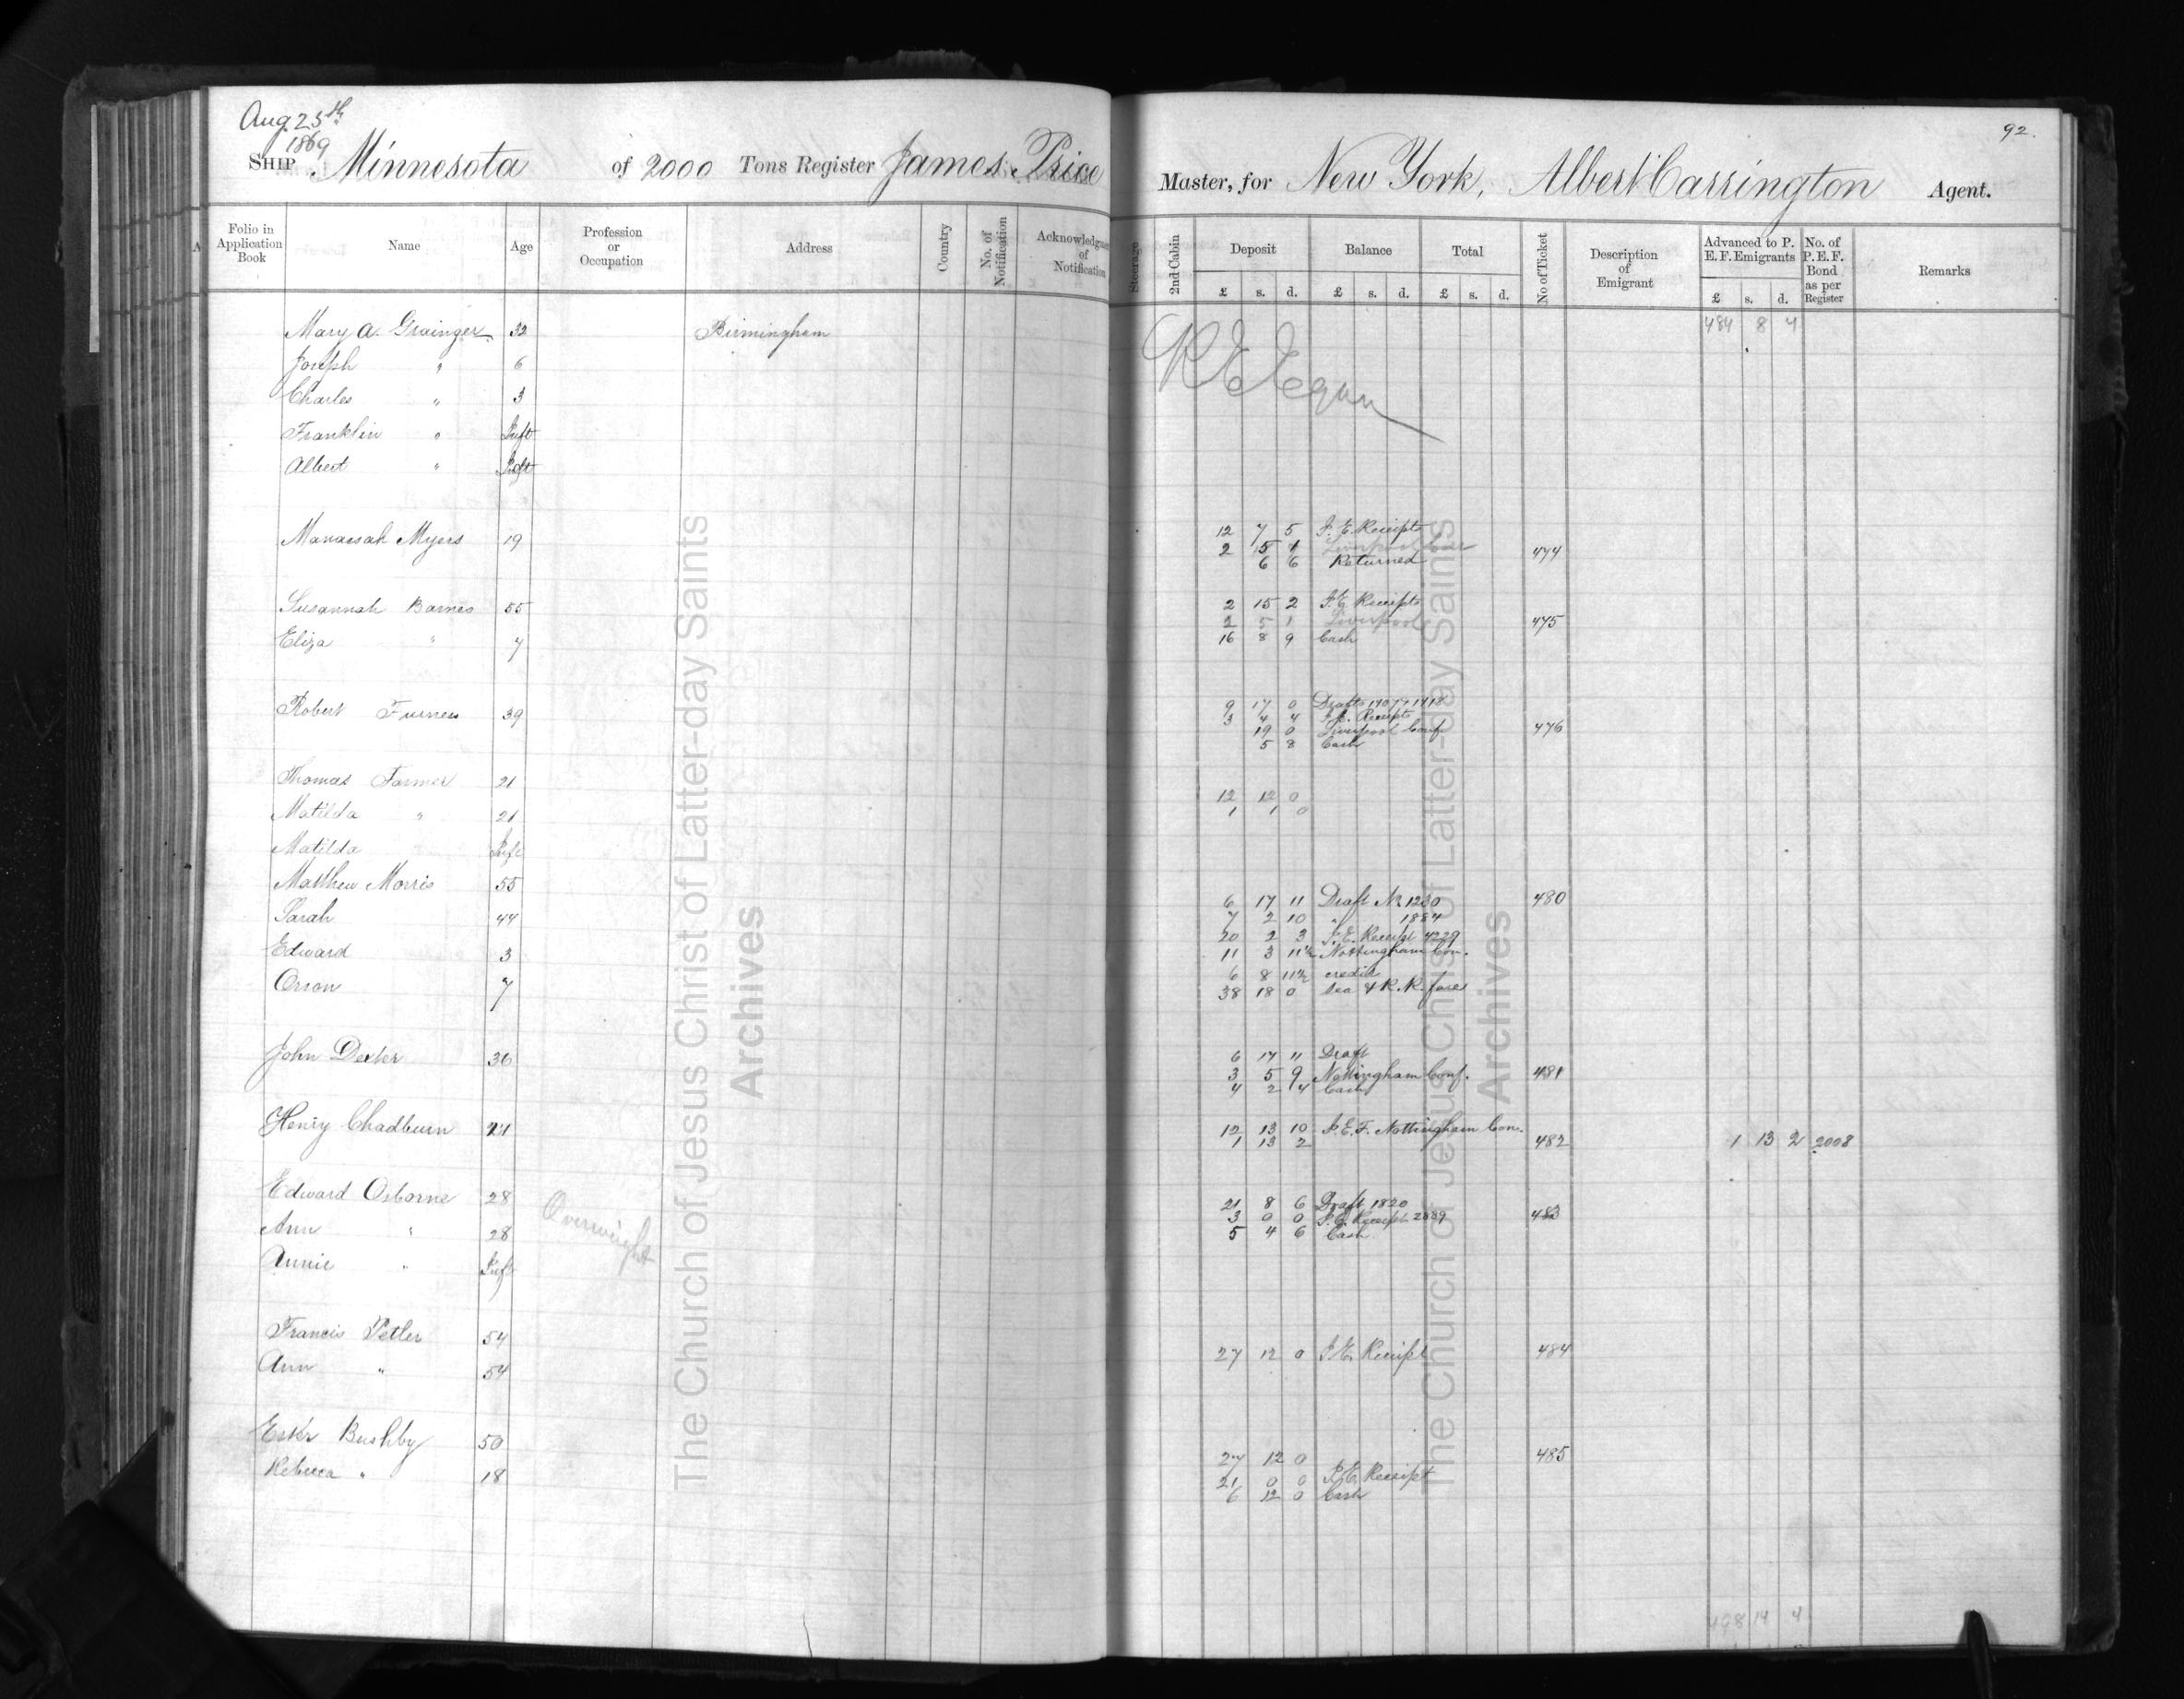 Aug. 25th
1869
92.
SHIP Minnesota of 2000 Tons Register James Price Master, for New York, Albert Carrington Agent.
Folio in Application Book Name Age Profession or Occupation Address Country No. of Notification Acknowledgment of Notification Steerage 2nd Cabin Deposit Balance Total No of Ticket Description of Emigrant Advanced to P. E. F. Emigrants No. of P. E. F. Bond as per Register Remarks
£ s. d. £ s. d. £ s. d. £ s. d.
Mary A. Grainger 32 Birmingham 484 8 4
Joseph " 6
Charles " 3
Franklin " Inft
Albert " Inft
Manassah Myers 19 12 7 5 I. E. Receipts
2 5 1 Liverpool
6 6 Returned 474
Susannah Barnes 55 2 15 2 I. E. Receipts
2 5 1 Liverpool 475
Eliza " 7 16 8 9 Cash
Robert Furness 39 9 17 0 Drafts
3 4 4 I. E. Receipts
19 0 Liverpool Conf. 476
5 8 Cash
Thomas Farmer 21 12 12 0
Matilda " 21 1 1 0
Matilda Inft
Matthew Morris 55 6 17 11 Draft No 1230 480
Sarah 44 7 2 10 " 1884
20 2 3 I. E. Receipt 4229
Edward 3 11 3 11½ Nottingham Con.
6 8 11½ credit
Orson 7 38 18 0 Sea & R. R. fare
John Dexter 36 6 17 11 Draft
3 5 9 Nottingham Conf. 481
4 2 4 Cash
Henry Chadburn 21 12 13 10 P. E. F. Nottingham Con.
1 13 2 482 1 13 2 2008
Edward Osborne 28 Overweight 21 8 6 Draft 1820
3 0 0 I. E. Receipt 2889 483
Ann " 28 5 4 6 Cash
Annie " Inft
Francis Petler 54
27 12 0 I. E. Receipt 484
Ann " 54
Bushby 50
27 12 0 485
Rebecca " 18 21 0 0 I. E. Receipt
6 12 0 Cash
498 14 4
The Church of Jesus Christ of Latter-day Saints
Archives
The Church of Jesus Christ of Latter-day Saints
Archives